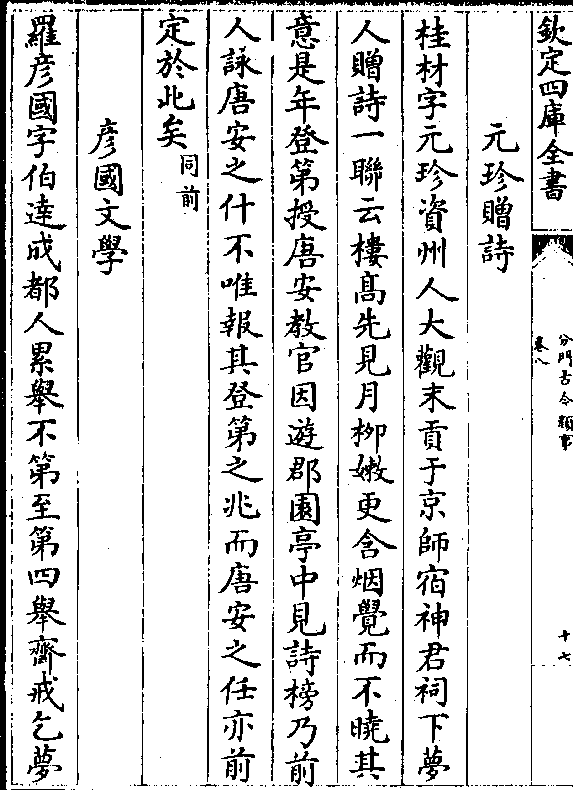 欽定四庫全書
分門古今類事
卷八
十七
元珍贈詩
桂材字元珍資州人大觀末貢于京師宿神君祠下夢
人贈詩一聯云樓髙先見月栁嫩更含烟覺而不曉其
意是年登第授唐安教官因遊郡園亭中見詩榜乃前
人詠唐安之什不唯報其登第之兆而唐安之任亦前
定於此矣同前
彦國文學
羅彦國字伯達成都人累舉不第至第四舉齋戒乞夢